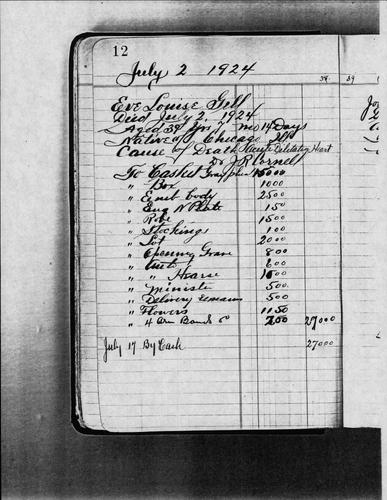 12
July 2 1924
38 39
Eve Louise Gill
Died July 2, 1924
Aged 39 yrs 7 mo 14 Days
Native of Chicago Ills
Cause of Death Acute Dilitating Hart
Dr J R Cornell
To Casket Gray plush 15000
" Box 1000
" Embt body 2500
" Eng N Plate 150
" Robe 1500
" Stockings 100
" Lot 2000
" Openning Grave 800
" Auto 600
" " Hearse 1000
" Ministe 500
" Delivery Remains 500
" Flowers 1150
" 4 Arm Bands 200 27000
July 17 By Cash 27000